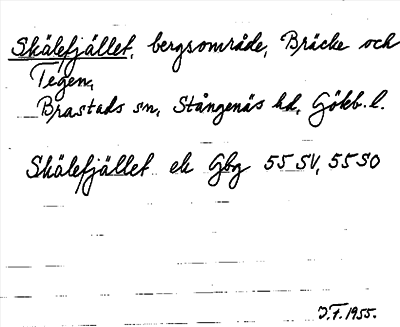 Skälefjället, bergsområde, Bräcke och
Tegen,
Brastads sn, Stångenäs hd, Götb. l.
Skälefjället ek Gbg 55 SV, 55 SO
J.F. 1955.